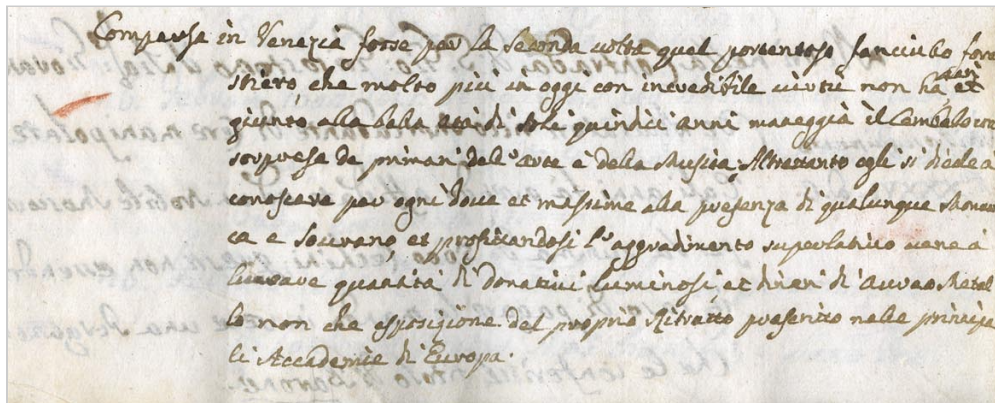 Comparsa in Venezia forse per la seconda volta quel portentoso fanciulo fore
stiero che molto più in oggi con incredibile virtù non ha guari et
giunto alla bela età di soli quindici anni mareggià il Cembalo con
sorpresa de primari dell'arte è della Musica, Altrettanto egli si diede à
conoscere per ogni doue et massime alla presenza di qualunque Monar
ca e Sourano, et profitandosi l'aggradimento superlatiuo uene à
lucrare quantità di donatiui luminosi, et dinari di Aureo Metal
lo non che esposizione del proprio Ritratto preserito nelle principa
li Accademie di Europa.